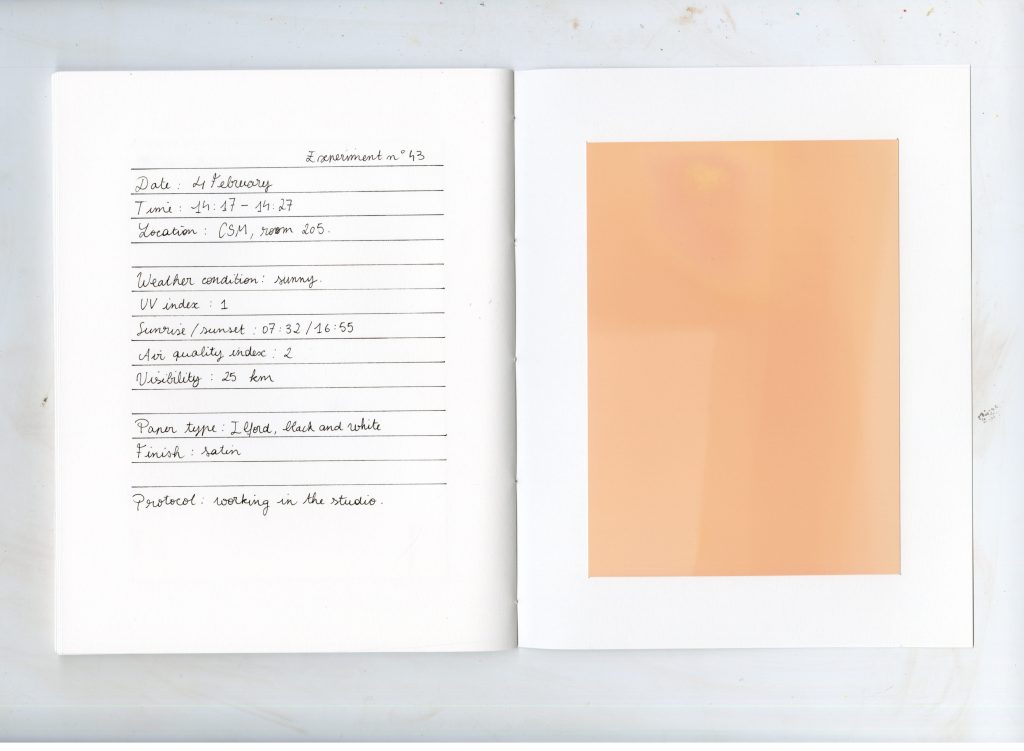 Experiment n° 43
Date : 4 February
Time : 14:17 - 14:27
Location : CSM, room 205.
Weather condition : sunny.
UV index : 1
Sunrise / sunset : 07:32 / 16:55
Air quality index : 2
Visibility : 25 km
Paper type : Ilford, black and white
Finish : satin
Protocol : working in the studio.